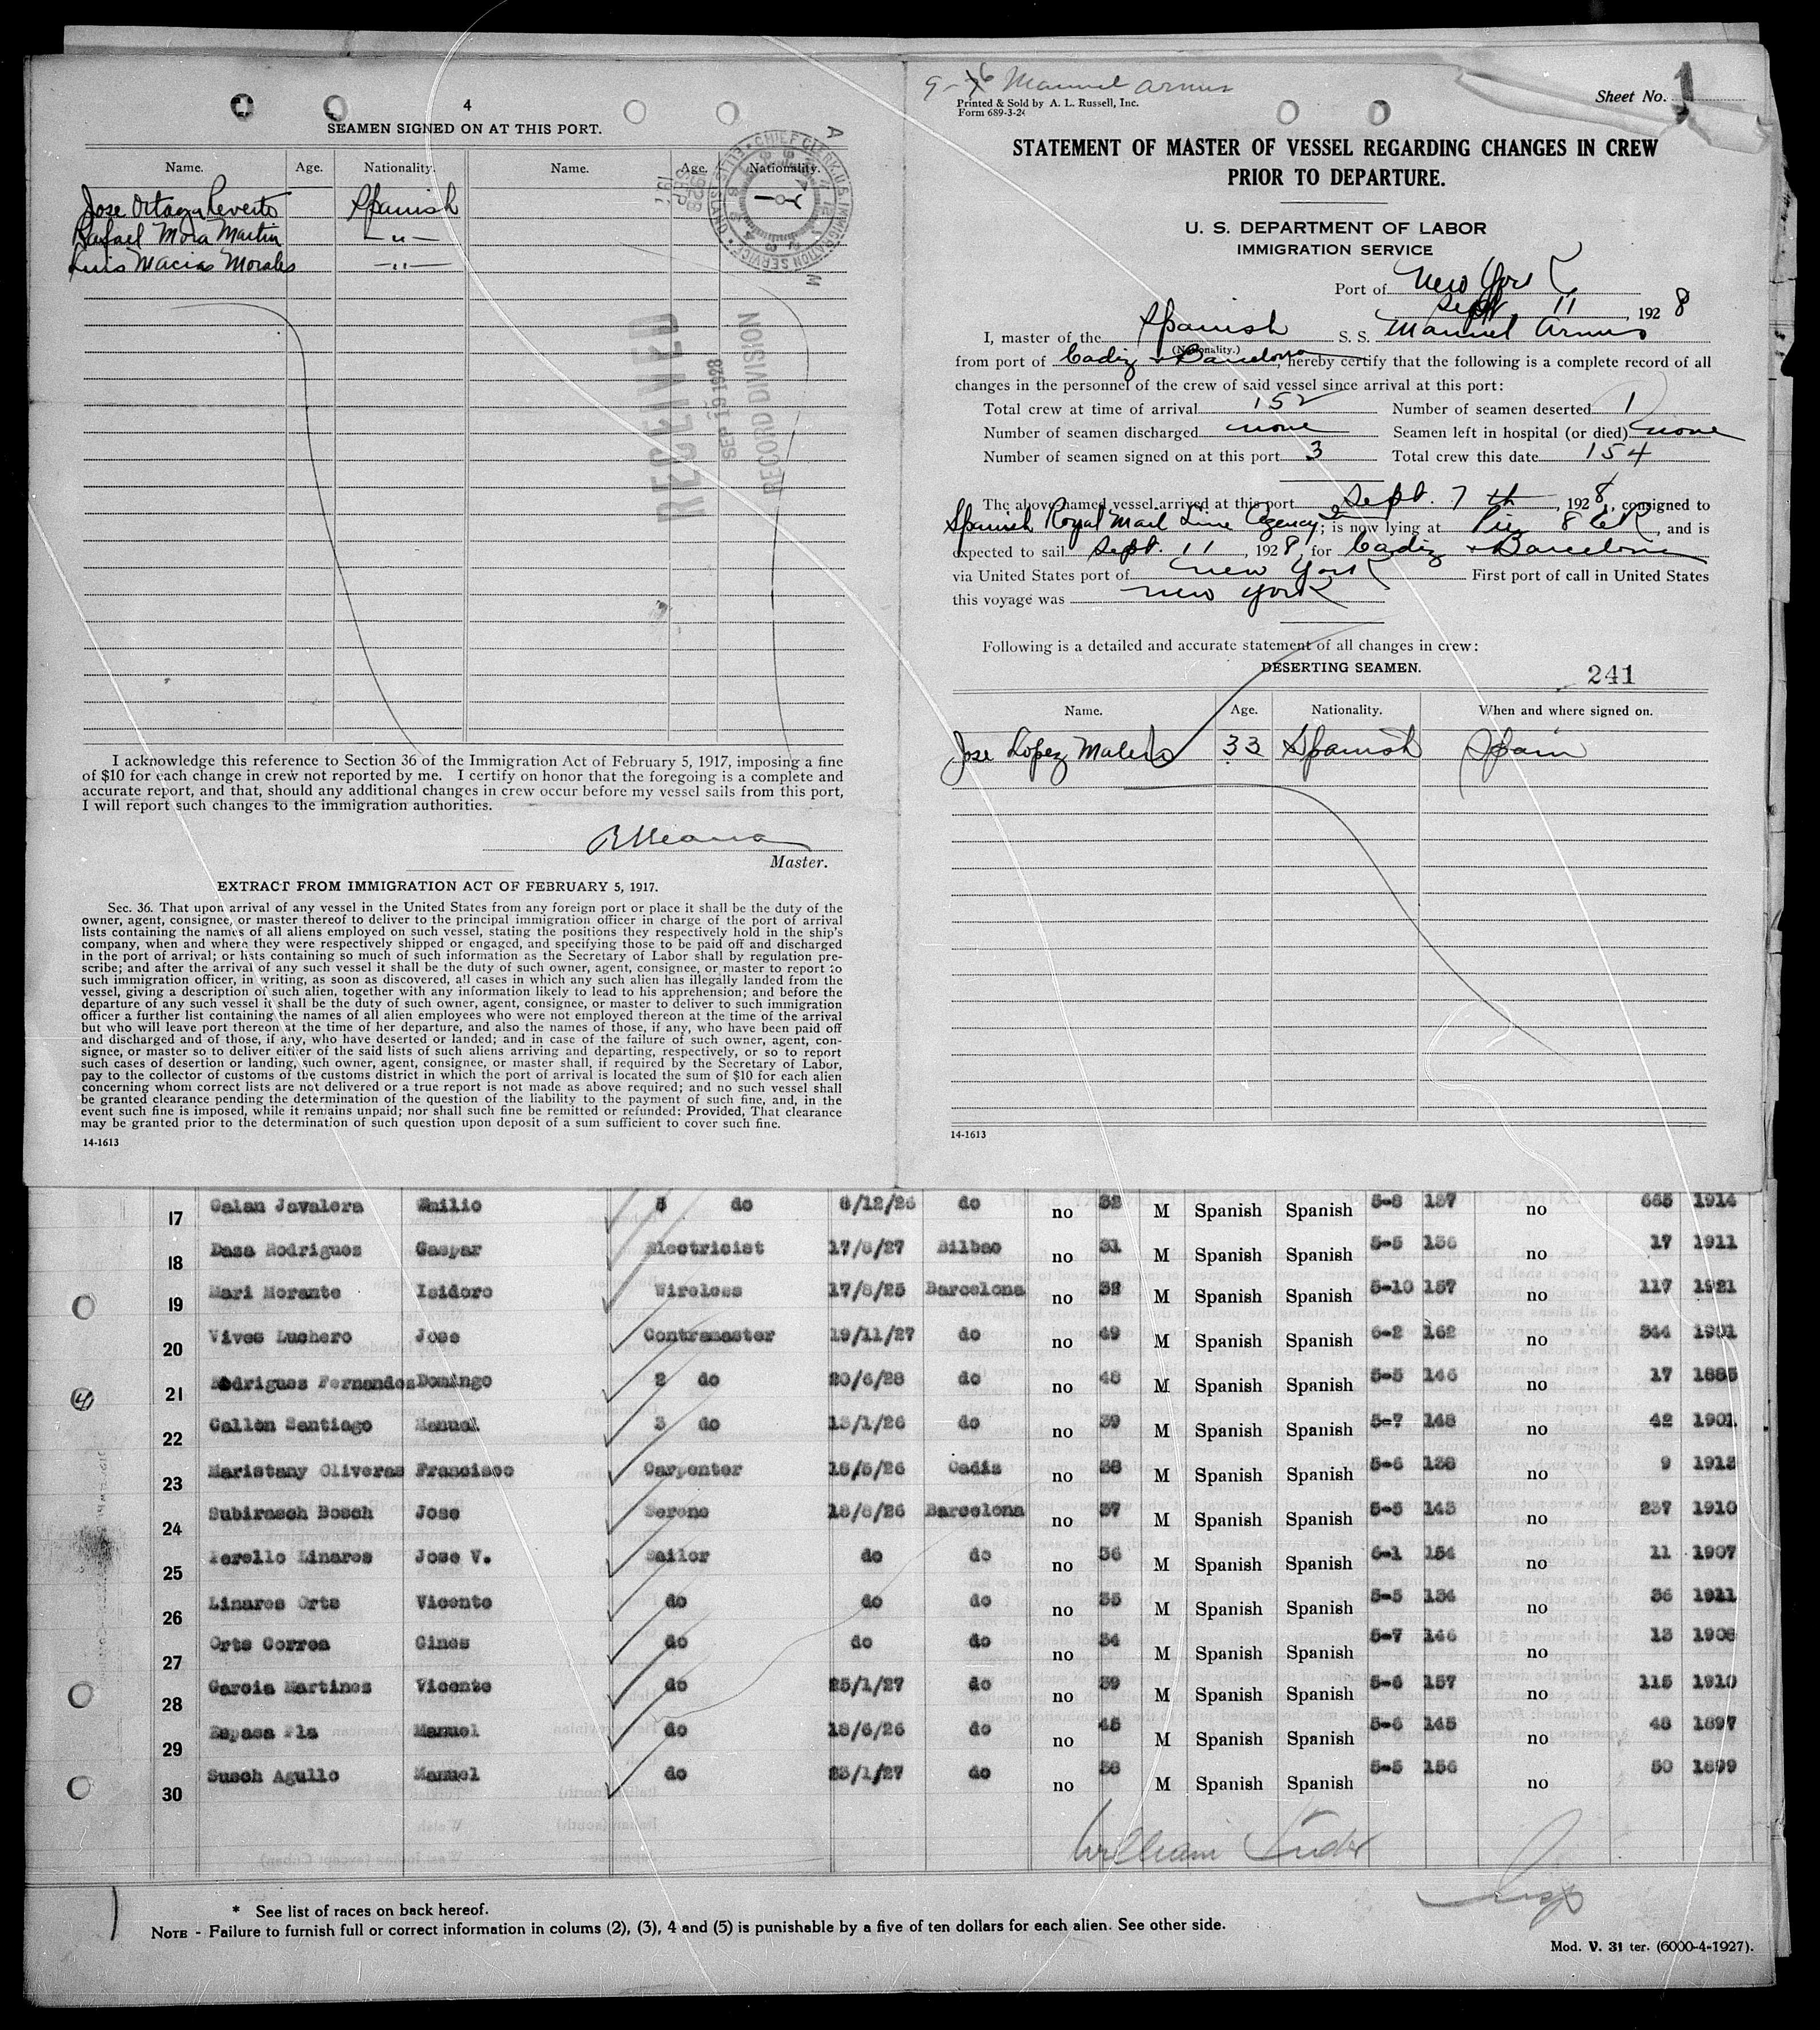 4
SEAMEN SIGNED ON AT THIS PORT.
Name. Age. Nationality. Name. Age. Nationality.
Jose Ortega Reverto Spanish
Rafael Mora Martin — " —
Luis Macias Morales — " —
CHIEF CLERK U.S. IMMIGRATION SERVICE ELLIS ISLAND
RECEIVED
SEP 19 1928
RECORD DIVISION
I acknowledge this reference to Section 36 of the Immigration Act of February 5, 1917, imposing a fine
of $10 for each change in crew not reported by me. I certify on honor that the foregoing is a complete and
accurate report, and that, should any additional changes in crew occur before my vessel sails from this port,
I will report such changes to the immigration authorities.
Master.
EXTRACT FROM IMMIGRATION ACT OF FEBRUARY 5, 1917.
Sec. 36. That upon arrival of any vessel in the United States from any foreign port or place it shall be the duty of the
owner, agent, consignee, or master thereof to deliver to the principal immigration officer in charge of the port of arrival
lists containing the names of all aliens employed on such vessel, stating the positions they respectively hold in the ship's
company, when and where they were respectively shipped or engaged, and specifying those to be paid off and discharged
in the port of arrival; or lists containing so much of such information as the Secretary of Labor shall by regulation pre-
scribe; and after the arrival of any such vessel it shall be the duty of such owner, agent, consignee, or master to report to
such immigration officer, in writing, as soon as discovered, all cases in which any such alien has illegally landed from the
vessel, giving a description of such alien, together with any information likely to lead to his apprehension; and before the
departure of any such vessel it shall be the duty of such owner, agent, consignee, or master to deliver to such immigration
officer a further list containing the names of all alien employees who were not employed thereon at the time of the arrival
but who will leave port thereon at the time of her departure, and also the names of those, if any, who have been paid off
and discharged and of those, if any, who have deserted or landed; and in case of the failure of such owner, agent, con-
signee, or master so to deliver either of the said lists of such aliens arriving and departing, respectively, or so to report
such cases of desertion or landing, such owner, agent, consignee, or master shall, if required by the Secretary of Labor,
pay to the collector of customs of the customs district in which the port of arrival is located the sum of $10 for each alien
concerning whom correct lists are not delivered or a true report is not made as above required; and no such vessel shall
be granted clearance pending the determination of the question of the liability to the payment of such fine, and, in the
event such fine is imposed, while it remains unpaid; nor shall such fine be remitted or refunded: Provided, That clearance
may be granted prior to the determination of such question upon deposit of a sum sufficient to cover such fine.
14-1613
Manuel Arnus
Printed & Sold by A. L. Russell, Inc.
Form 689-3-24
Sheet No. 1
STATEMENT OF MASTER OF VESSEL REGARDING CHANGES IN CREW
PRIOR TO DEPARTURE.
U. S. DEPARTMENT OF LABOR
IMMIGRATION SERVICE
Port of New York
Sept 11, 1928
I, master of the Spanish S. S. Manuel Arnus
(Nationality.)
from port of Cadiz + Barcelona, hereby certify that the following is a complete record of all
changes in the personnel of the crew of said vessel since arrival at this port:
Total crew at time of arrival 152 Number of seamen deserted 1
Number of seamen discharged none Seamen left in hospital (or died) none
Number of seamen signed on at this port 3 Total crew this date 154
The above-named vessel arrived at this port Sept. 7th, 1928, consigned to
Spanish Royal Mail Line Agency; is now lying at Pier 8 ER, and is
expected to sail Sept. 11, 1928, for Cadiz + Barcelona
via United States port of New York First port of call in United States
this voyage was New York
Following is a detailed and accurate statement of all changes in crew:
DESERTING SEAMEN.
241
Name. Age. Nationality. When and where signed on.
Jose Lopez 33 Spanish Spain
14-1613
17 Galan Javalera Emilio 3 do 6/12/26 do no 32 M Spanish Spanish 5-8 157 no 665 1914
18 Dasa Rodrigues Gaspar Electricist 17/8/27 Bilbao no 31 M Spanish Spanish 5-5 136 no 17 1911
19 Mari Morante Isidoro Wireless 17/8/25 Barcelona no 32 M Spanish Spanish 5-10 157 no 117 1921
20 Vives Luchero Jose Contramaster 19/11/27 do no 49 M Spanish Spanish 6-2 162 no 344 1901
21 Rodrigues Fernandes Domingo 2 do 20/6/28 do no 48 M Spanish Spanish 5-5 146 no 17 1885
22 Gallón Santiago Manuel 3 do 13/1/26 do no 39 M Spanish Spanish 5-7 148 no 42 1901
23 Maristany Oliveras Francisco Carpenter 18/5/26 Cadis no 38 M Spanish Spanish 5-6 138 no 9 1912
24 Subirasch Bosch Jose Sereno 18/6/26 Barcelona no 37 M Spanish Spanish 5-5 143 no 237 1910
25 Perello Linares Jose V. Sailor do do no 36 M Spanish Spanish 6-1 154 no 11 1907
26 Linares Orts Vicente do do do no 35 M Spanish Spanish 5-5 134 no 36 1921
27 Orts Correa Gines do do do no 34 M Spanish Spanish 5-7 146 no 13 1908
28 Garcia Martines Vicente do 25/1/27 do no 39 M Spanish Spanish 5-6 157 no 115 1910
29 Espasa Pla Manuel do 18/6/26 do no 45 M Spanish Spanish 5-6 145 no 48 1897
30 Susch Agullo Manuel do 23/1/27 do no 38 M Spanish Spanish 5-5 156 no 50 1899
4
William
Insp
* See list of races on back hereof.
NOTE - Failure to furnish full or correct information in colums (2), (3), 4 and (5) is punishable by a five of ten dollars for each alien. See other side.
Mod. V. 31 ter. (6000-4-1927).